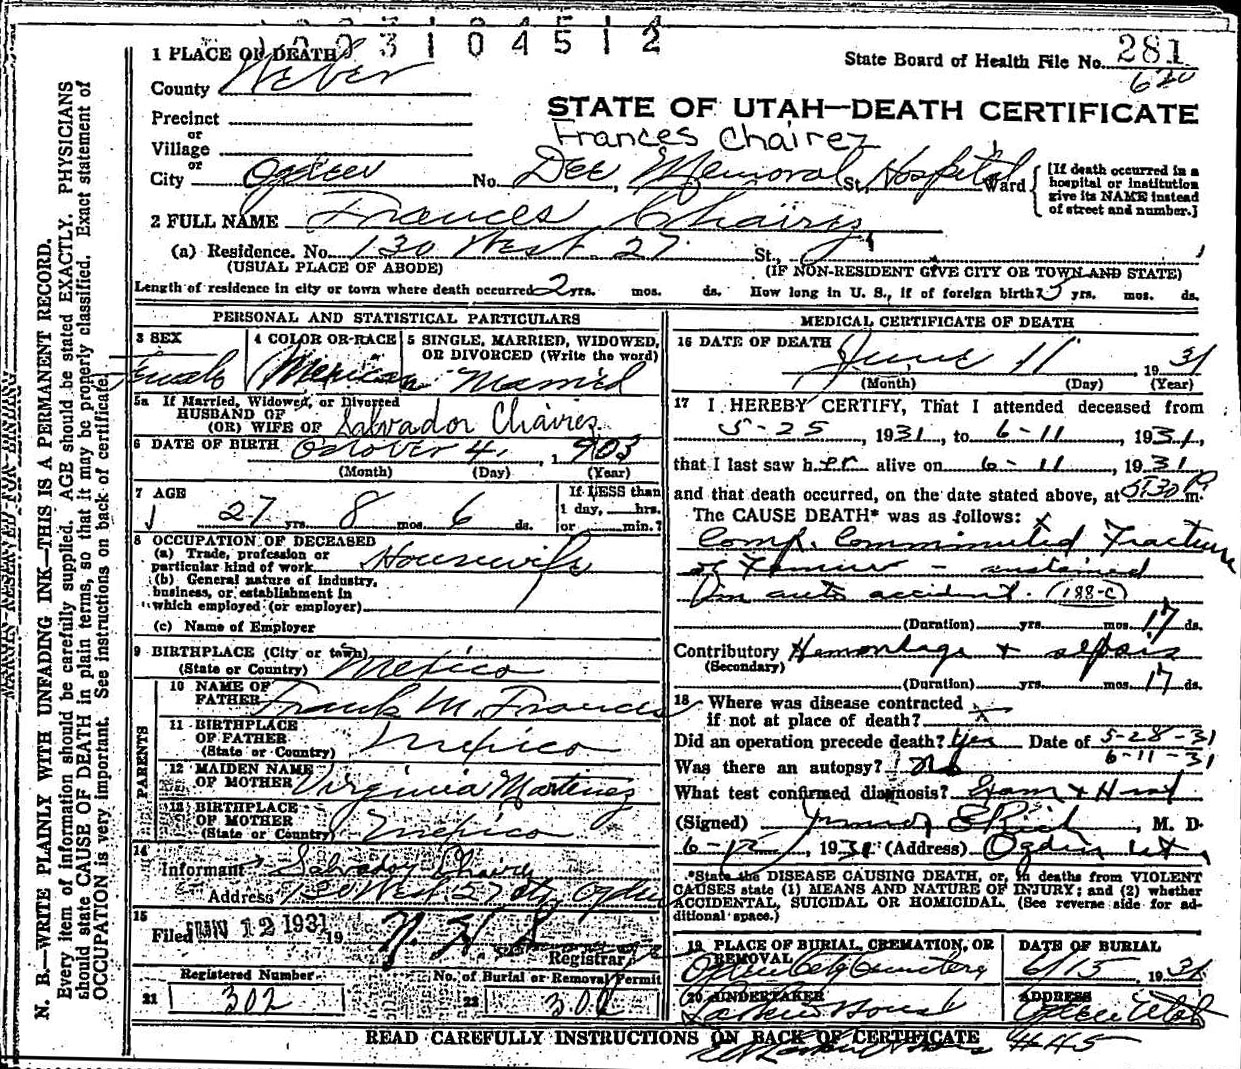 1 0 0 3 1 0 4 5 1 2
State Board of Health File No. 281
620
STATE OF UTAH—DEATH CERTIFICATE
Frances Chairez
1 PLACE OF DEATH
County Weber
Precinct
or
Village
or
City Ogden No. Dee Memoral St. Hospital Ward
[If death occurred in a
hospital or institution
give its NAME instead
of street and number.]
2 FULL NAME Frances Chairez
(a) Residence. No. 130 West 27 St.,
(USUAL PLACE OF ABODE) (IF NON-RESIDENT GIVE CITY OR TOWN AND STATE)
Length of residence in city or town where death occurred 2 yrs. mos. ds. How long in U. S., if of foreign birth? 3 yrs. mos. ds.
PERSONAL AND STATISTICAL PARTICULARS
3 SEX
Female
4 COLOR OR RACE
Mexican
5 SINGLE, MARRIED, WIDOWED,
OR DIVORCED (Write the word)
Married
5a If Married, Widowed, or Divorced
HUSBAND OF
(OR) WIFE OF Salvador Chairez
6 DATE OF BIRTH October 4, 1903
(Month) (Day) (Year)
7 AGE
27 yrs. 8 mos. 6 ds.
If LESS than
1 day, hrs.
or min.?
8 OCCUPATION OF DECEASED
(a) Trade, profession or
particular kind of work Housewife
(b) General nature of industry,
business, or establishment in
which employed (or employer)
(c) Name of Employer
9 BIRTHPLACE (City or town)
(State or Country) Mexico
PARENTS
10 NAME OF
FATHER Frank M. Frances
11 BIRTHPLACE
OF FATHER
(State or Country) Mexico
12 MAIDEN NAME
OF MOTHER Virginia Martinez
13 BIRTHPLACE
OF MOTHER
(State or Country) Mexico
14
Informant Salvador Chairez
Address 130 West 27 St. Ogden
15
Filed JUN 12 1931 19
Registrar
Registered Number
21 302
No. of Burial or Removal Permit
22 300
MEDICAL CERTIFICATE OF DEATH
16 DATE OF DEATH
June 11, 1931
(Month) (Day) (Year)
17 I HEREBY CERTIFY, That I attended deceased from
5-25, 1931, to 6-11, 1931,
that I last saw her alive on 6-11, 1931
and that death occurred, on the date stated above, at 5:30 P m.
The CAUSE DEATH* was as follows:
Comp. Comminuted Fracture
of Femur - sustained
In auto accident. (188-C)
(Duration) yrs. mos. 17 ds.
Contributory Hemorrhage + sepsis
(Secondary)
(Duration) yrs. mos. 17 ds.
18 Where was disease contracted
if not at place of death?
Did an operation precede death? Yes Date of 5-28-31
6-11-31
Was there an autopsy? No
What test confirmed diagnosis?
(Signed) E Rich, M. D.
6-12, 1931 (Address) Ogden Ut
*State the DISEASE CAUSING DEATH, or, in deaths from VIOLENT
CAUSES state (1) MEANS AND NATURE OF INJURY; and (2) whether
ACCIDENTAL, SUICIDAL OR HOMICIDAL. (See reverse side for ad-
ditional space.)
19 PLACE OF BURIAL, CREMATION, OR
REMOVAL
Ogden City Cemetery
DATE OF BURIAL
6/15, 1931
20 UNDERTAKER
Larkin
ADDRESS
Ogden Utah
READ CAREFULLY INSTRUCTIONS ON BACK OF CERTIFICATE
H45
MARGIN RESERVED FOR BINDING
N. B.—WRITE PLAINLY WITH UNFADING INK—THIS IS A PERMANENT RECORD.
Every item of information should be carefully supplied. AGE should be stated EXACTLY. PHYSICIANS
should state CAUSE OF DEATH in plain terms, so that it may be properly classified. Exact statement of
OCCUPATION is very important. See instructions on back of certificate.